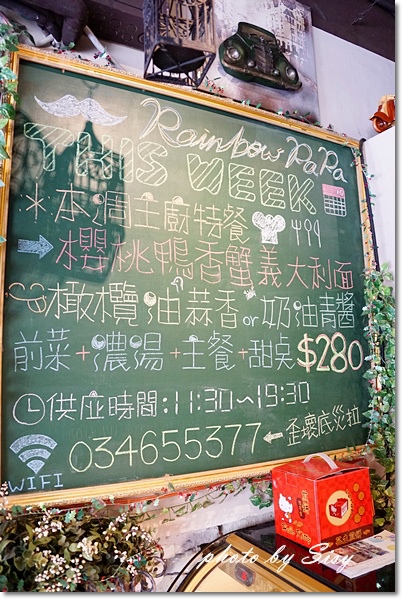 Rainbow PaPa
THIS WEEK
＊本週主廚特餐
→櫻桃鴨香蟹義大利面
橄欖油蒜香or奶油青醬
前菜+濃湯+主餐+甜點$280
供座時間:11:30~19:30
034655377←歪壞底災拉
WIFI
Hello Kitty
photo by Sisy